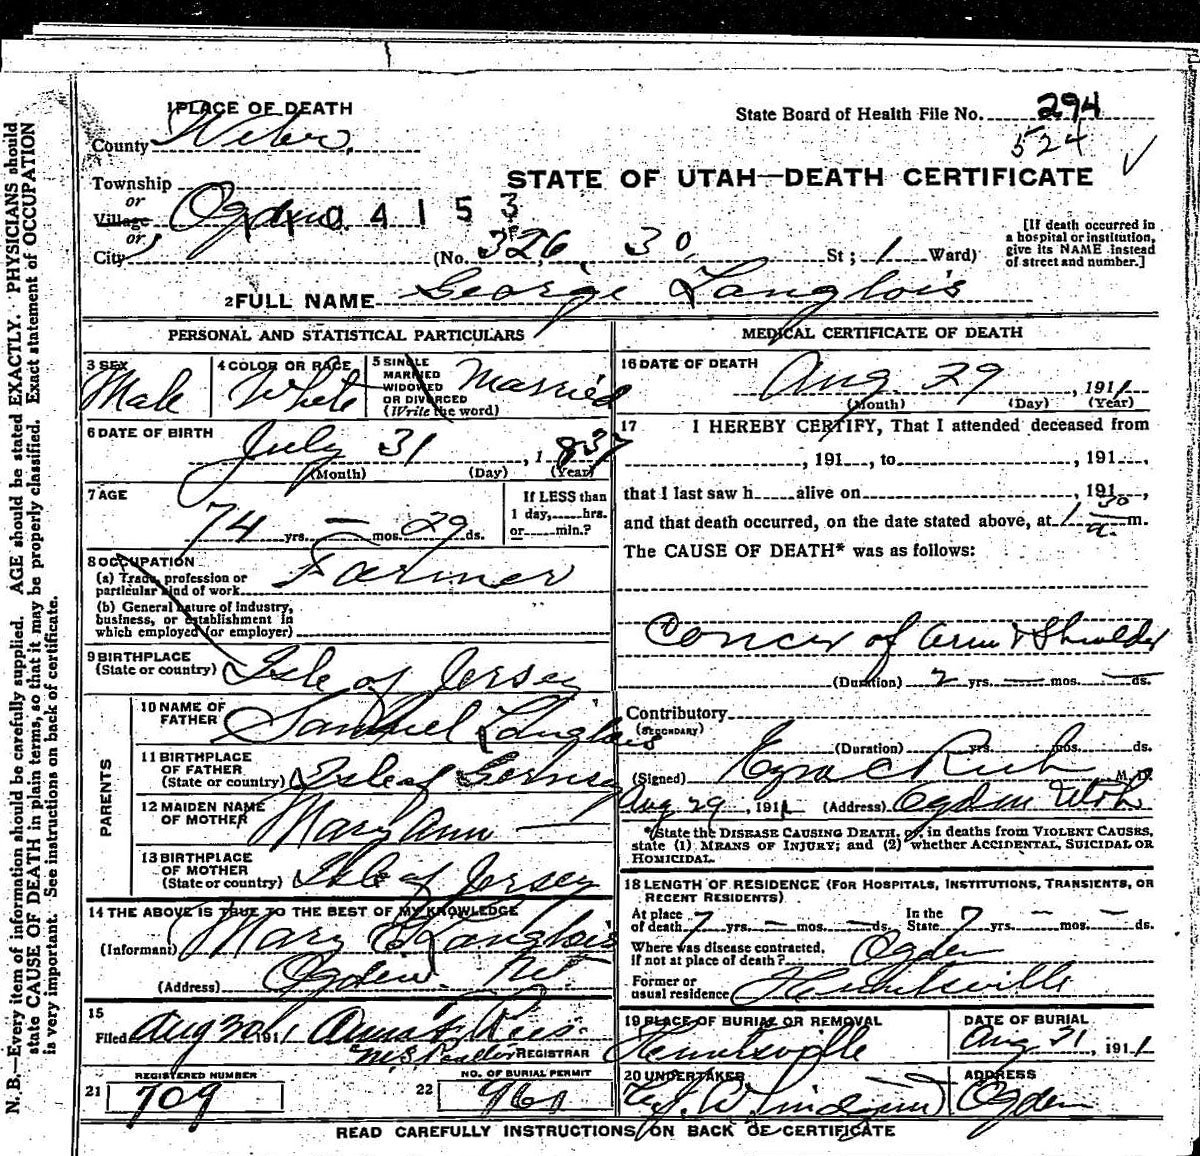 1 PLACE OF DEATH
County Weber,
State Board of Health File No. 294
524
STATE OF UTAH—DEATH CERTIFICATE
Township
or
Village Ogden
4 1 5 3
or
City
(No. 326, 30, St; 1 Ward)
[If death occurred in
a hospital or institution,
give its NAME instead
of street and number.]
2 FULL NAME George Langlois
PERSONAL AND STATISTICAL PARTICULARS
3 SEX
Male
4 COLOR OR RACE
White
5 SINGLE
MARRIED
WIDOWED
OR DIVORCED
(Write the word)
Married
6 DATE OF BIRTH
July 31, 1837
(Month) (Day) (Year)
7 AGE
74 yrs. — mos. 29 ds.
If LESS than
1 day, hrs.
or min.?
8 OCCUPATION
(a) Trade, profession or
particular kind of work Farmer
(b) General nature of industry,
business, or establishment in
which employed (or employer)
9 BIRTHPLACE
(State or country) Isle of Jersey
PARENTS
10 NAME OF
FATHER Samuel Langlois
11 BIRTHPLACE
OF FATHER
(State or country) Isle of Gernsey
12 MAIDEN NAME
OF MOTHER Mary Ann —
13 BIRTHPLACE
OF MOTHER
(State or country) Isle of Jersey
14 THE ABOVE IS TRUE TO THE BEST OF MY KNOWLEDGE
(Informant) Mary E Langlois
(Address) Ogden
15
Filed Aug 30 1911
REGISTRAR
REGISTERED NUMBER
21 709
NO. OF BURIAL PERMIT
22 960
MEDICAL CERTIFICATE OF DEATH
16 DATE OF DEATH
Aug 29, 1911
(Month) (Day) (Year)
17 I HEREBY CERTIFY, That I attended deceased from
, 191 , to , 191 ,
that I last saw h alive on , 191 ,
and that death occurred, on the date stated above, at 1 30 a. m.
The CAUSE OF DEATH* was as follows:
Concer of arm & Shoulder
(Duration) 2 yrs. — mos. — ds.
Contributory
(SECONDARY)
(Duration) yrs. mos. ds.
(Signed) Ezra C Rich M. D.
Aug 29, 1911 (Address) Ogden Utah
*State the DISEASE CAUSING DEATH, or, in deaths from VIOLENT CAUSES,
state (1) MEANS OF INJURY; and (2) whether ACCIDENTAL, SUICIDAL OR
HOMICIDAL.
18 LENGTH OF RESIDENCE (FOR HOSPITALS, INSTITUTIONS, TRANSIENTS, OR
RECENT RESIDENTS)
At place
of death 7 yrs. — mos. — ds.
In the
State 7 yrs. — mos. — ds.
Where was disease contracted,
If not at place of death? Ogden
Former or
usual residence Huntsville
19 PLACE OF BURIAL OR REMOVAL
Huntsville
DATE OF BURIAL
Aug 31, 1911
20 UNDERTAKER
ADDRESS
Ogden
READ CAREFULLY INSTRUCTIONS ON BACK OF CERTIFICATE
N. B.—Every item of information should be carefully supplied. AGE should be stated EXACTLY. PHYSICIANS should
state CAUSE OF DEATH in plain terms, so that it may be properly classified. Exact statement of OCCUPATION
is very important. See instructions on back of certificate.